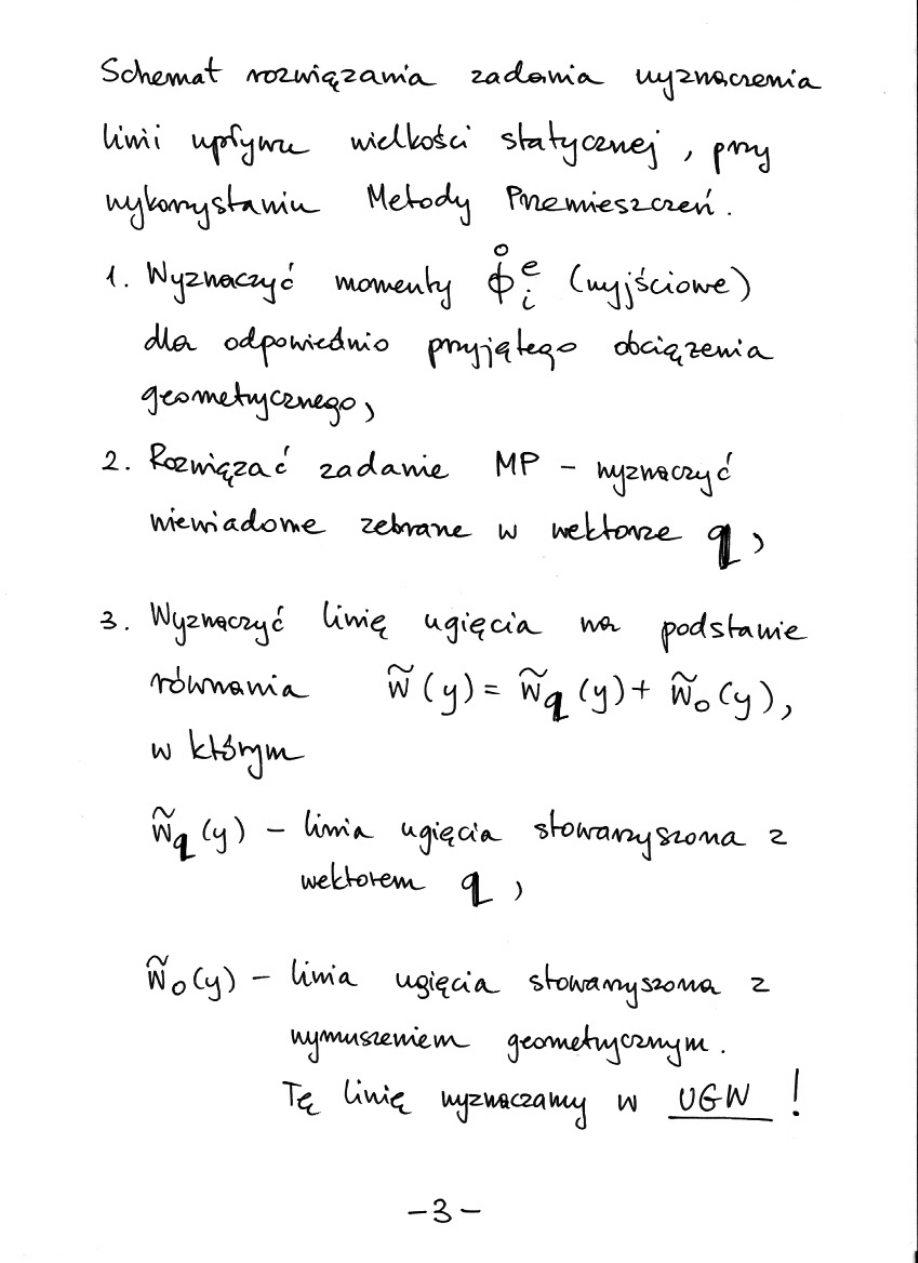 Schemat rozwiązania zadania wyznaczenia
linii wpływu wielkości statycznej, przy
wykorzystaniu Metody Przemieszczeń.
1. Wyznaczyć momenty Φ̊ᵢᵉ (wyjściowe)
dla odpowiednio przyjętego obciążenia
geometrycznego,
2. Rozwiązać zadanie MP - wyznaczyć
niewiadome zebrane w wektorze q,
3. Wyznaczyć linię ugięcia na podstawie
równania w̃(y) = w̃q(y) + w̃o(y),
w którym
w̃q(y) - linia ugięcia stowarzyszona z
wektorem q,
w̃o(y) - linia ugięcia stowarzyszona z
wymuszeniem geometrycznym.
Tę linię wyznaczamy w UGW!
-3-